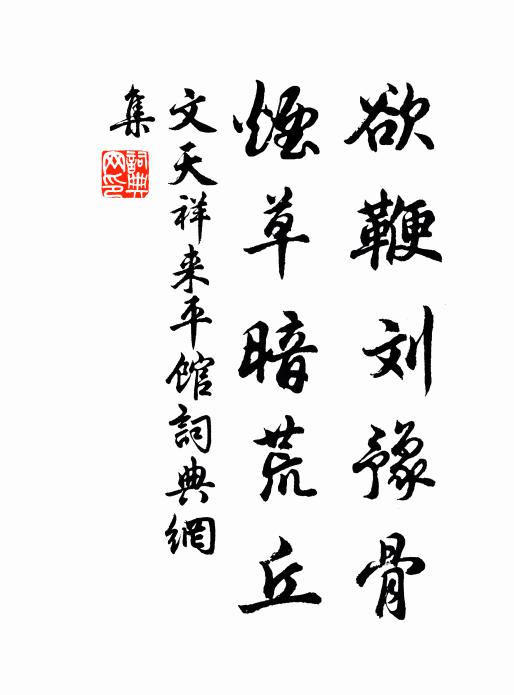 欲鞭刘豫骨
煙草暗荒丘
文天祥来平馆詞典網
集
詞典网印